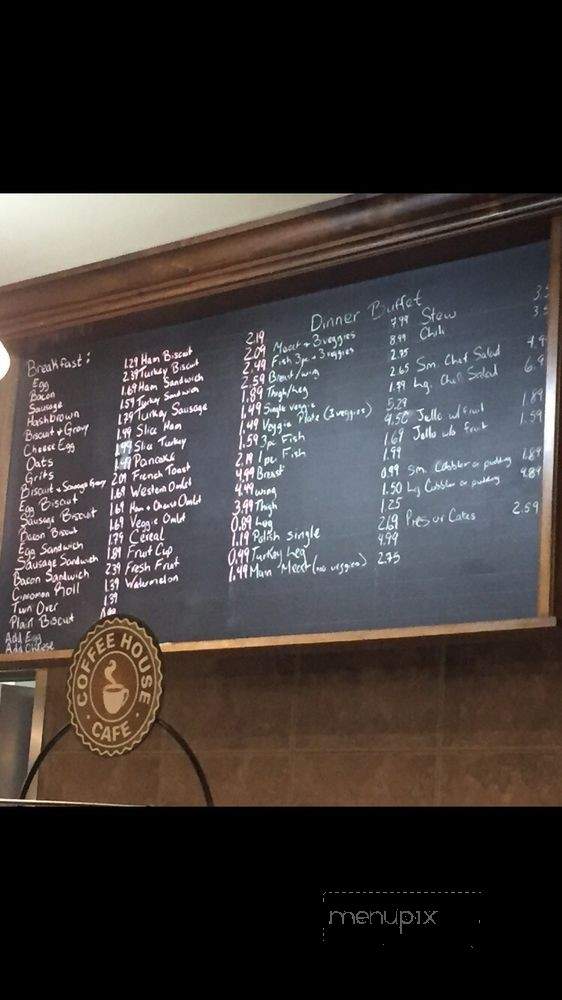 Dinner Buffet
Breakfast:
Egg
Bacon
Sausage
Hashbrown
Biscuit & Gravy
Cheese Egg
Oats
Grits
Biscuit & Sausage Gravy
Egg Biscuit
Sausage Biscuit
Bacon Biscuit
Egg Sandwich
Sausage Sandwich
Bacon Sandwich
Cinnamon Roll
Turn Over
Plain Biscuit
Add Egg
Add Cheese
1.29
2.39
1.69
1.59
1.79
1.99
1.99
1.49
2.09
1.69
1.69
1.69
1.79
1.89
2.39
1.59
1.39
Ham Biscuit
Turkey Biscuit
Ham Sandwich
Turkey Sandwich
Turkey Sausage
Slice Ham
Slice Turkey
Pancake
French Toast
Western Omlet
Ham & Cheese Omlet
Veggie Omlet
Cereal
Fruit Cup
Fresh Fruit
Watermelon
2.19
2.09
2.49
2.59
1.89
1.49
1.49
1.59
2.19
4.99
4.99
3.99
0.89
1.19
0.49
1.49
Meat + 3 veggies
Fish 3pc + 3 veggies
Breast/wing
Thigh/leg
Single veggie
Veggie Plate (3 veggies)
3pc Fish
1pc Fish
Breast
wing
Thigh
Leg
Polish single
Turkey Leg
Main Meat (no veggies)
7.99
8.99
2.75
2.65
1.99
5.29
4.50
1.69
1.99
0.99
1.50
1.25
2.69
4.99
2.75
Stew
Chili
Sm. Chef Salad
Lg. Chef Salad
Jello w/ fruit 1.89
Jello w/o fruit 1.59
Sm. Cobbler or pudding
Lg Cobbler or pudding
Pies or Cakes 2.59
COFFEE HOUSE
CAFE
menupix